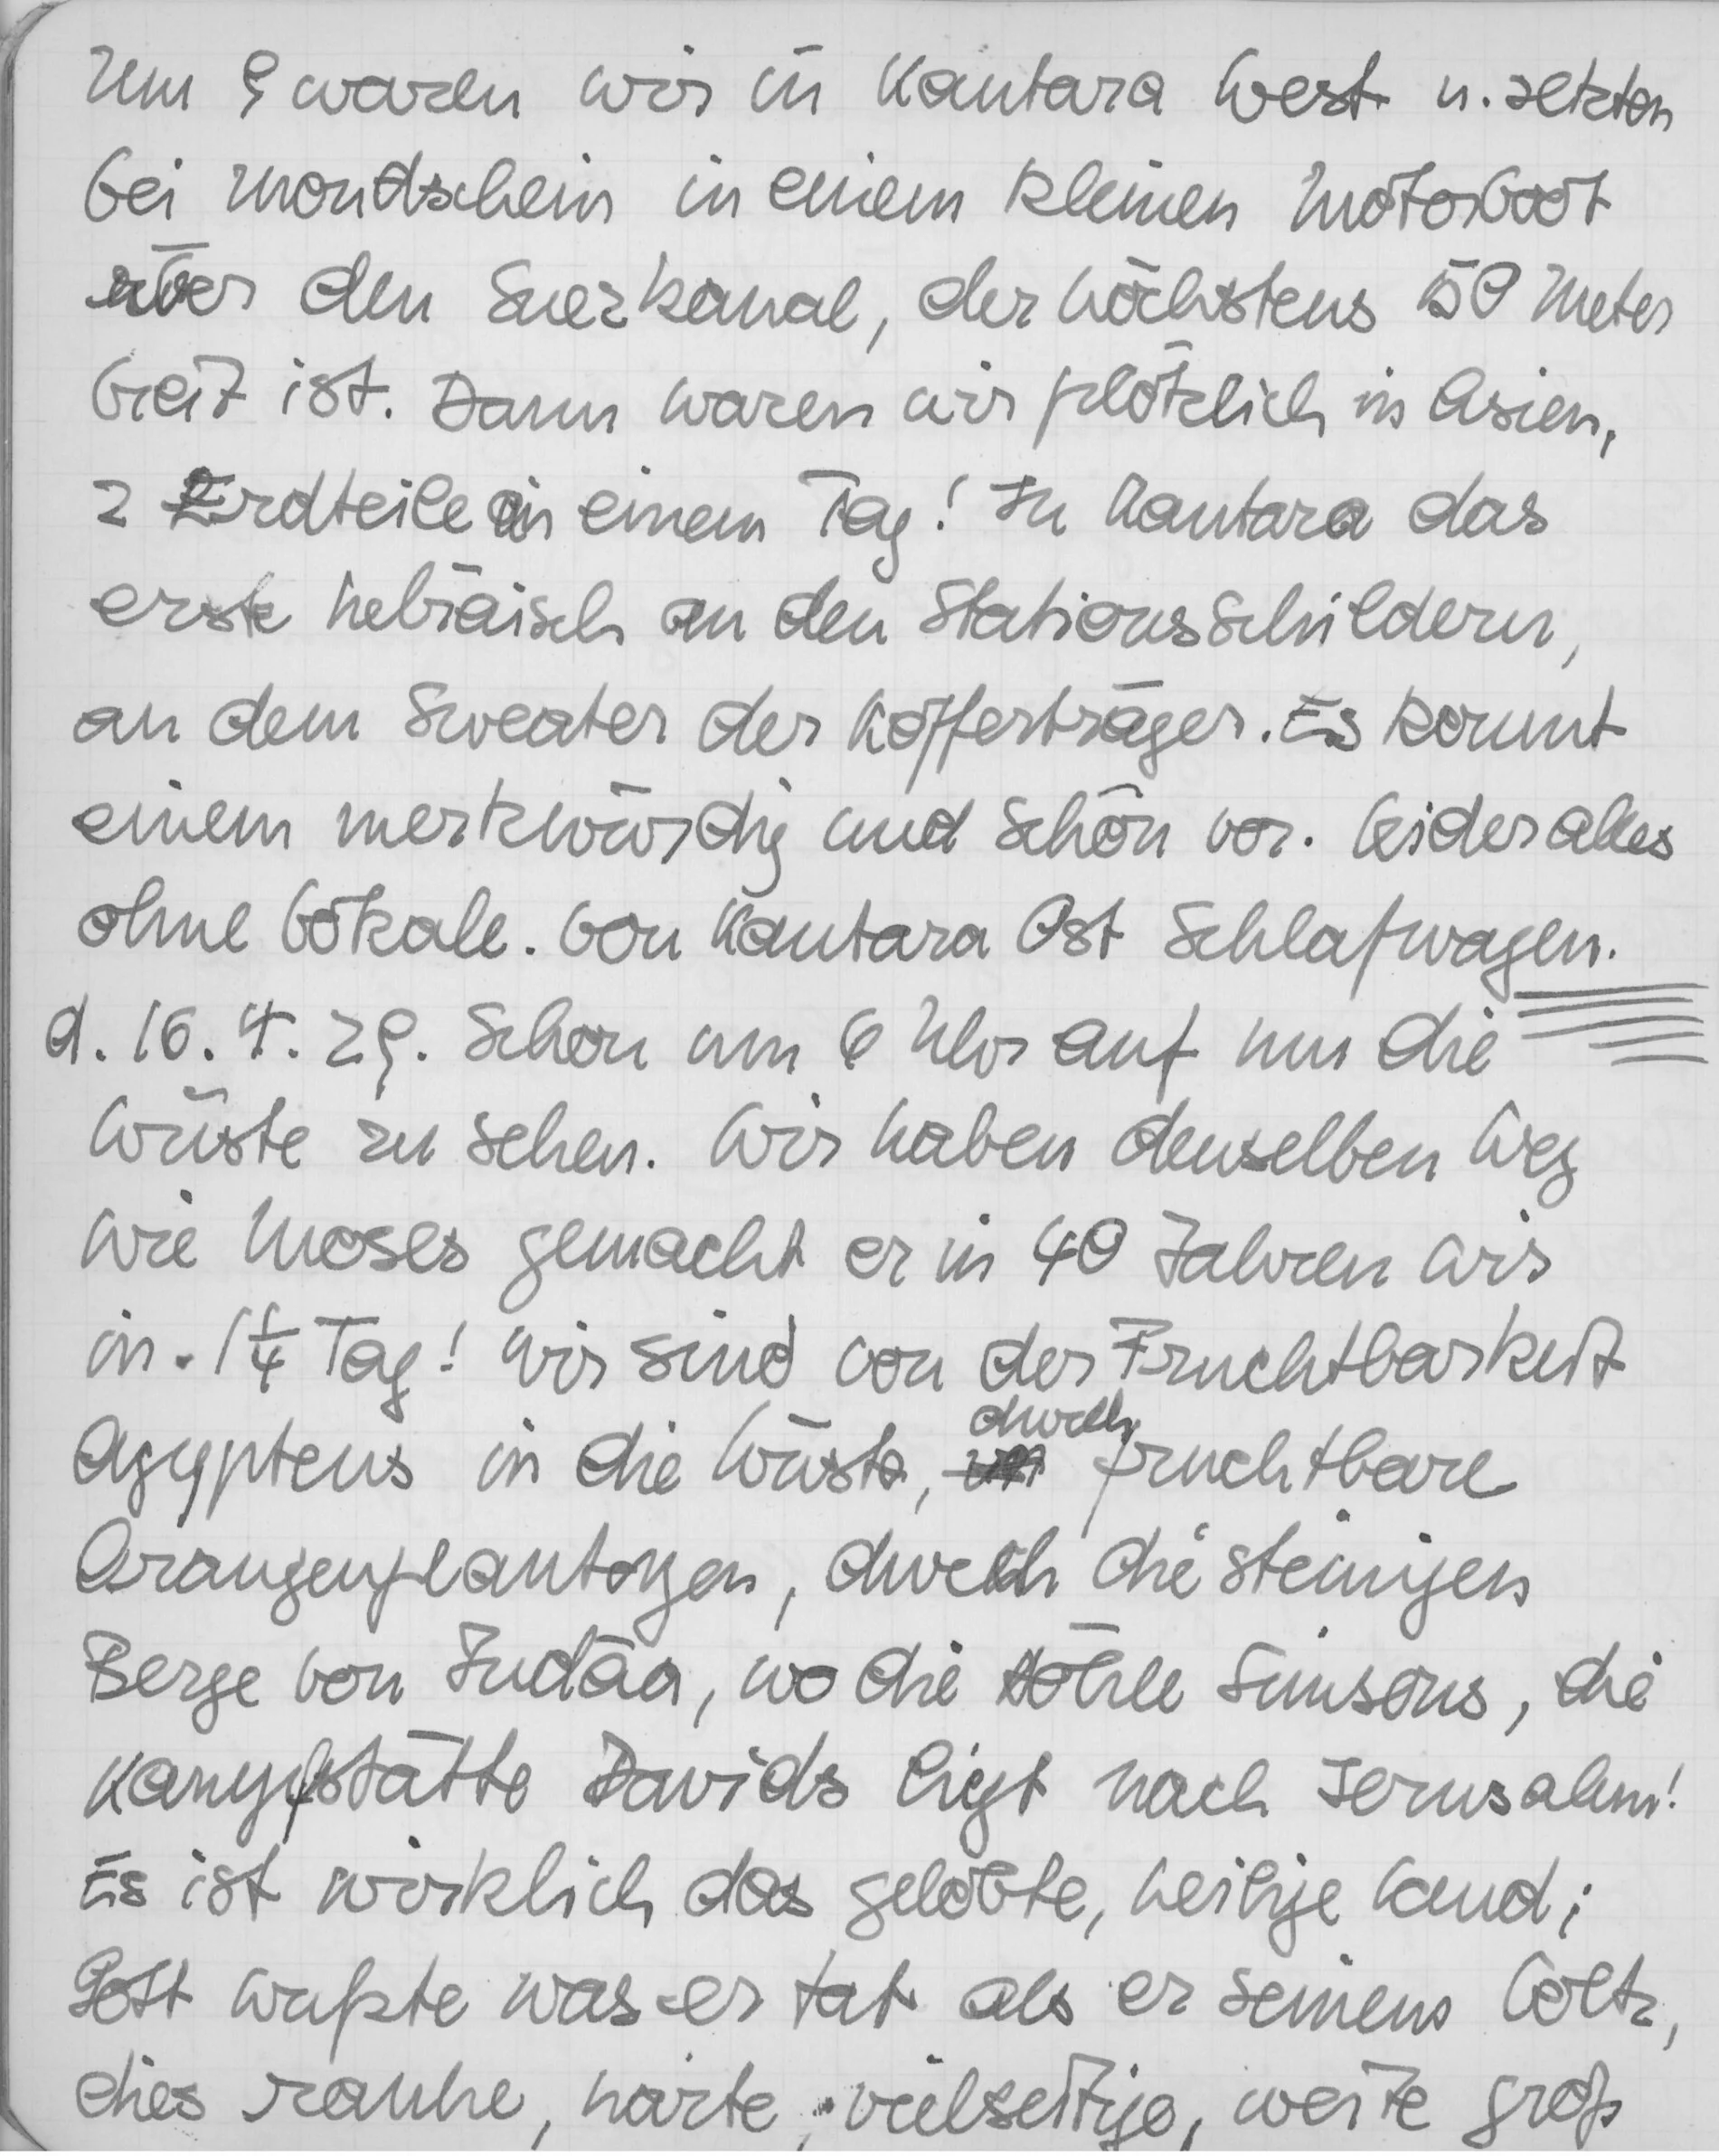 Um 9 waren wir in Kantara West u. setzten
bei Mondschein in einem kleinen Motorboot
über den Suezkanal, der höchstens 50 Meter
breit ist. Dann waren wir plötzlich in Asien,
2 Erdteile in einem Tag! In Kantara das
erste hebräisch an den Stationsschildern,
an dem Sweater der Kofferträger. Es kommt
einem merkwürdig und schön vor. Leider alles
ohne Vokale. Von Kantara Ost Schlafwagen.
d. 16. 4. 29. Schon um 6 Uhr auf um die
Wüste zu sehen. Wir haben denselben Weg
wie Moses gemacht er in 40 Jahren wir
in 1 1/4 Tag! Wir sind von der Fruchtbarkeit
Ägyptens in die Wüste, durch fruchtbare
Orangenplantagen, durch die steinigen
Berge von Judäa, wo die Höhle Simsons, die
Kampfstätte Davids liegt nach Jerusalem!
Es ist wirklich das gelobte, heilige Land;
Gott wußte was er tat als er seinem Volk,
dies rauhe, harte, vielseitige, weite groß